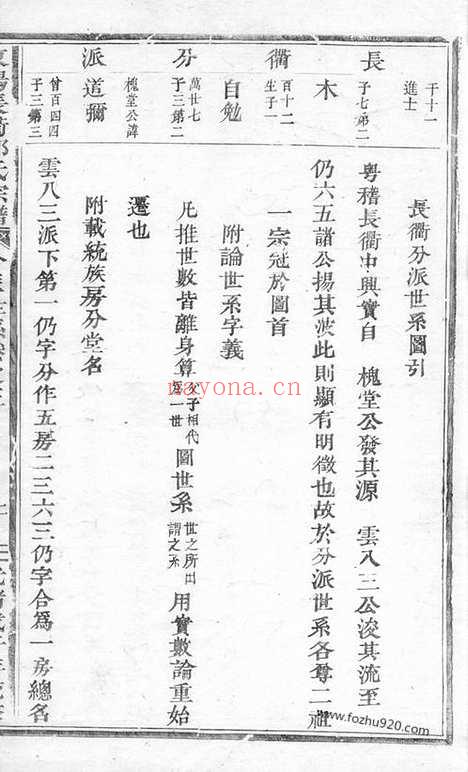 長衢分派世系圖引
粵稽長衢中興實自 槐堂公發其源 雲八三公浚其流至
仍六五諸公揚其波此則顯有明徵也故於分派世系各尊二祖
一宗冠於圖首
附論世系字義
凡推世數皆離身算父子相代爲一世圖世系世之所出謂之系用實數論重始
遷也
附載統族房分堂名
雲八三派下第一仍字分作五房二三六三仍字合爲一房總名
于十一
進士
長
子七第二
木
衢
百十二
生子一
自勉
分
萬廿七
于三第二
槐堂公諱
派
道彌
曾百四四
于三第三
氏宗譜
nayona.cn
www.fozhu920.com